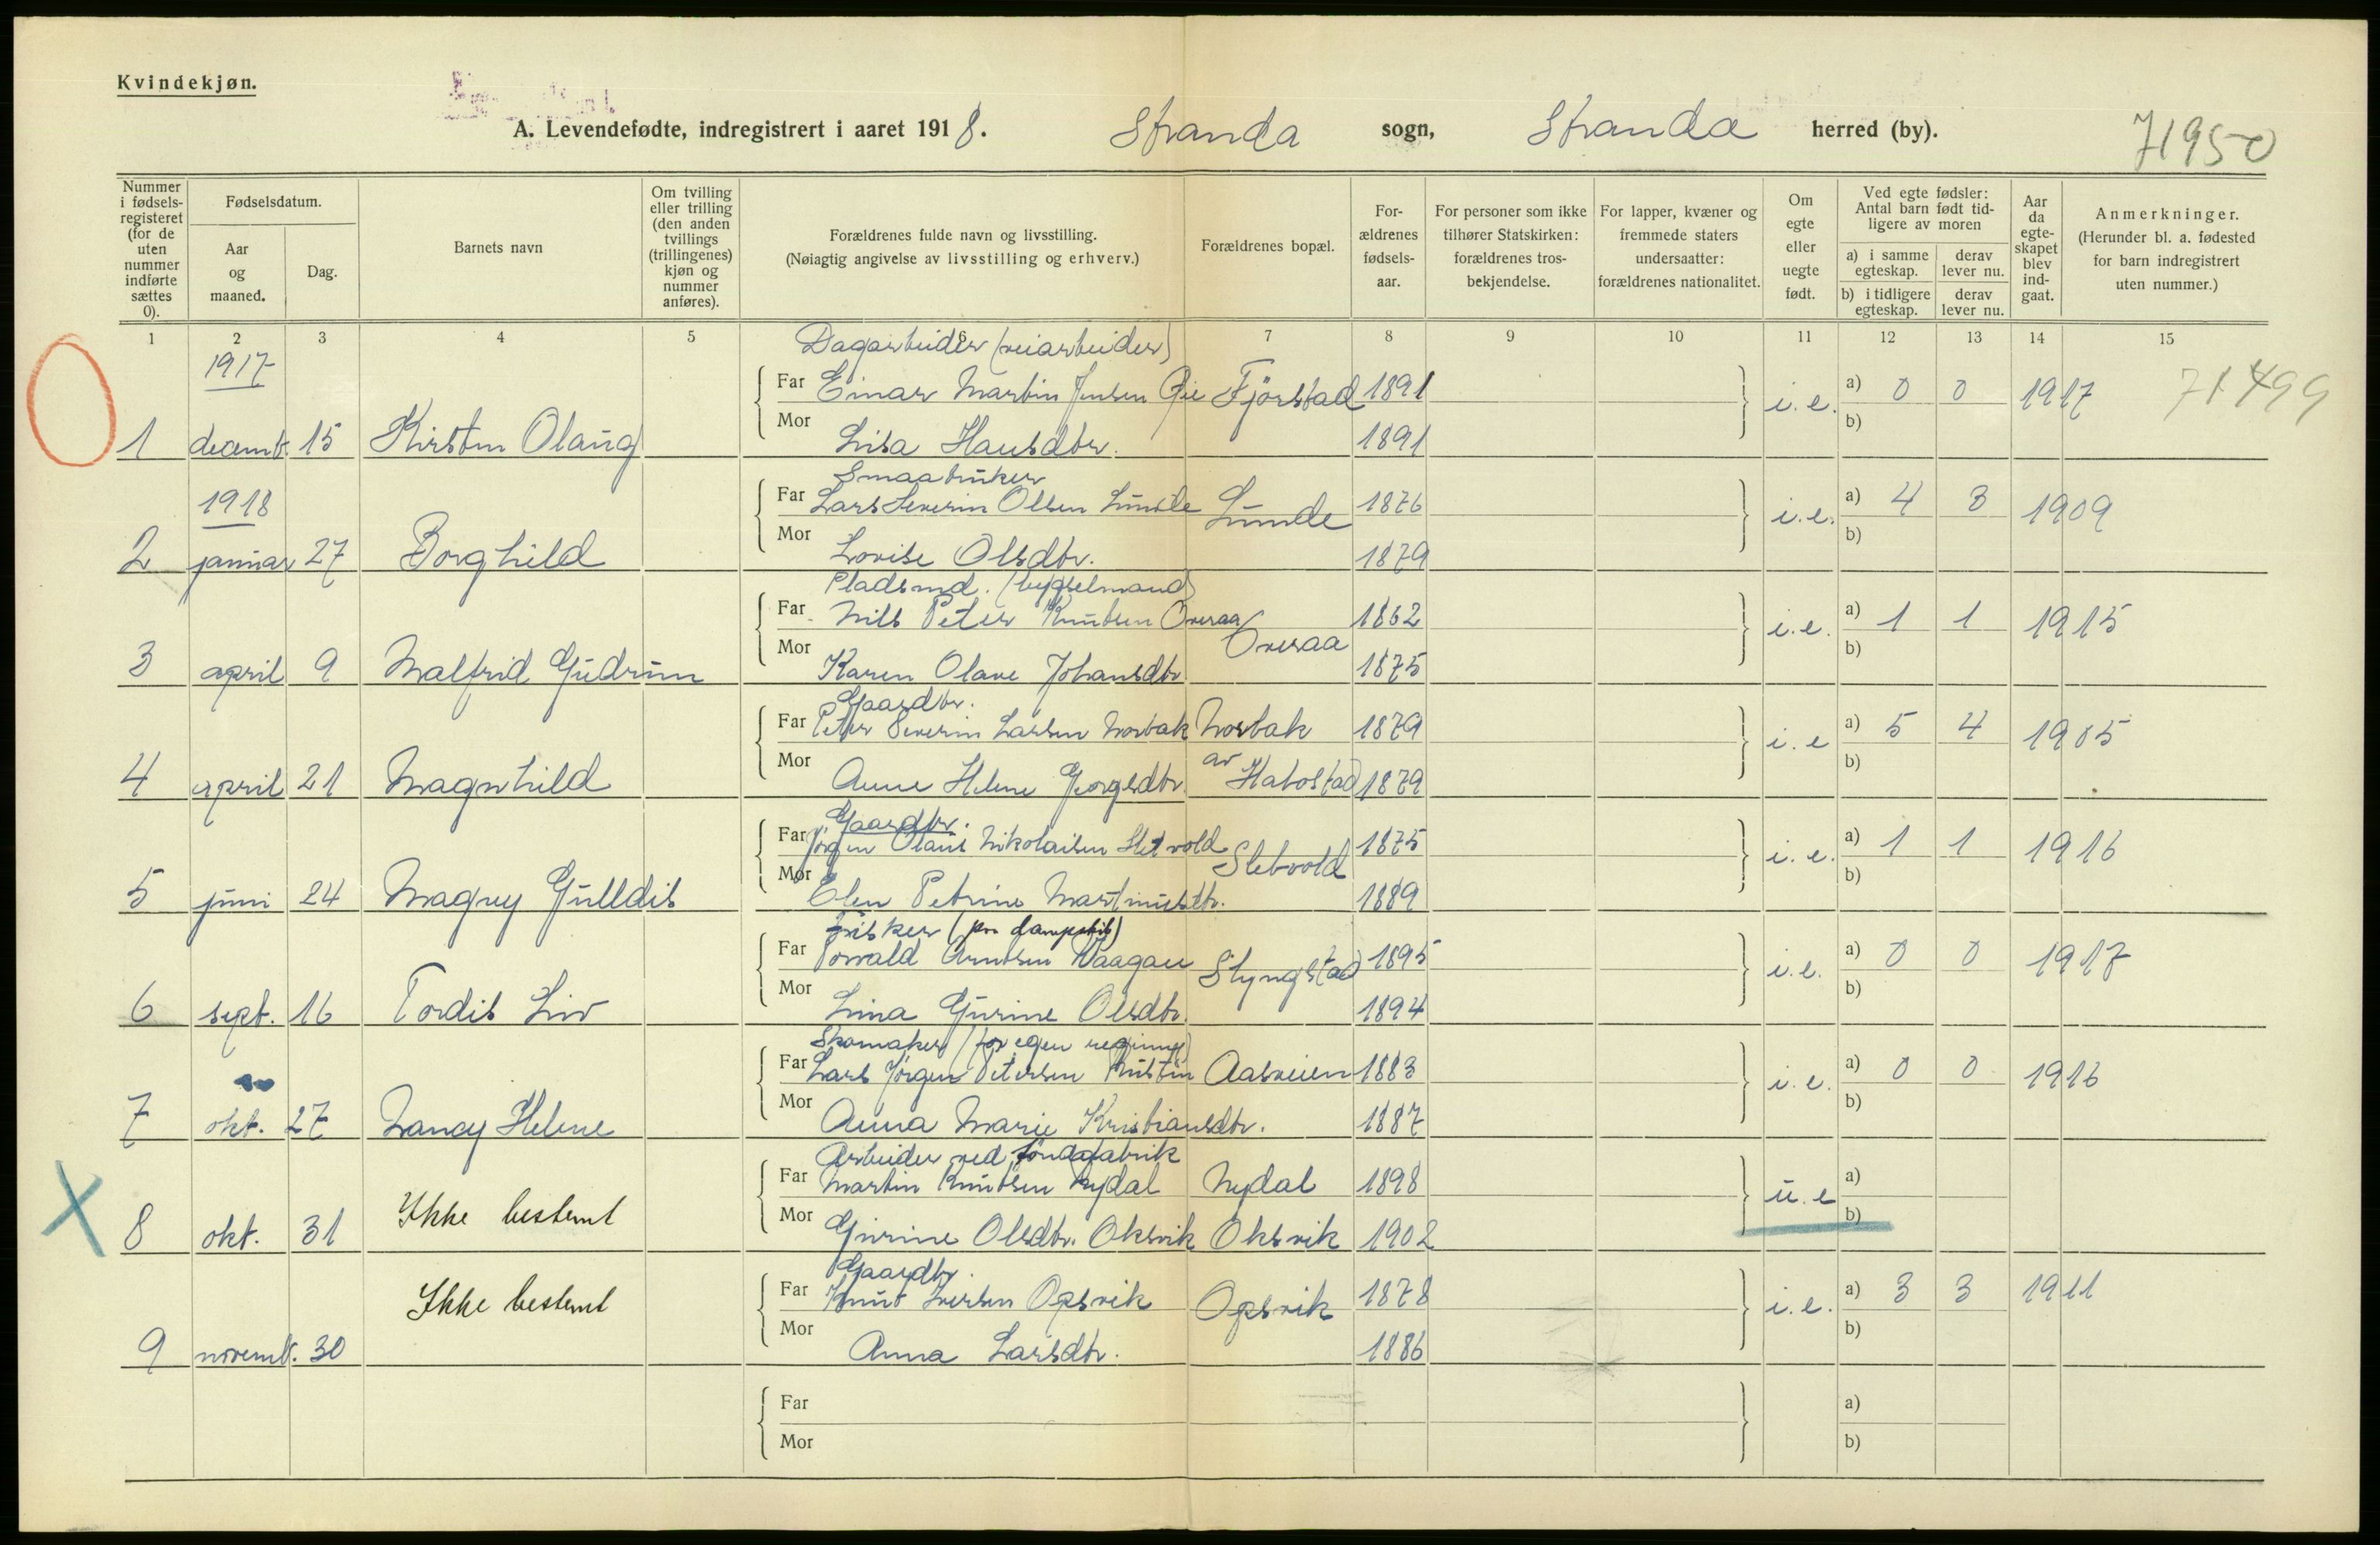 Kvindekjøn.
A. Levendefødte, indregistrert i aaret 1918. Stranda sogn, Stranda herred (by). 71950
Nummer i fødselsregisteret (for de uten nummer indførte sættes 0).
Fødselsdatum.
Aar og maaned.
Dag.
Barnets navn
Om tvilling eller trilling (den anden tvillings (trillingenes) kjøn og nummer anføres).
Forældrenes fulde navn og livsstilling.
(Nøiagtig angivelse av livsstilling og erhverv.)
Forældrenes bopæl.
Forældrenes fødselsaar.
For personer som ikke tilhører Statskirken: forældrenes trosbekjendelse.
For lapper, kvæner og fremmede staters undersaatter: forældrenes nationalitet.
Om egte eller uegte født.
Ved egte fødsler: Antal barn født tidligere av moren
a) i samme egteskap.
derav lever nu.
b) i tidligere egteskap.
derav lever nu.
Aar da egteskapet blev indgaat.
Anmerkninger.
(Herunder bl. a. fødested for barn indregistrert uten nummer.)
1 2 3 4 5 6 7 8 9 10 11 12 13 14 15
1917
Dagarbeider (veiarbeider)
Far Einar Martin Jensen Fjørstad 1891 i.e. a) 0 0 1917 71499
1 decemb. 15 Kirsten Olaug Mor Lisa Hansdtr. 1891 b)
1918
Smaabruker
Far Lars Severin Olsen Lunde Lunde 1876 i.e. a) 4 3 1909
2 januar 27 Borghild Mor Lovise Olsdtr. 1879 b)
Pladsmd. (bygselmand)
Far Nils Peter Knutsen Overaa Overaa 1862 i.e. a) 1 1 1915
3 april 9 Malfrid Gudrun Mor Karen Olave Johansdtr 1875 b)
Gaardbr.
Far Peter Severin Larsen Norbak Norbak 1879 i.e a) 5 4 1905
4 april 21 Magnhild Mor Anne Helene Georgsdtr. av Habostad 1879 b)
Gaardbr.
Far Jørgen Olaus Nikolaisen Sletvold Sletvold 1875 i.e. a) 1 1 1916
5 juni 24 Magny Gulldis Mor Elen Petrine Martinusdtr. 1889 b)
Fisker (paa dampskib)
Far Torvald Arntsen Vaagan Slyngstad 1895 i.e. a) 0 0 1917
6 sept. 16 Tordis Liv Mor Lina Gurine Olsdtr. 1894 b)
Skomaker (for egen regning)
Far Lars Jørgen Petersen Aasveien 1883 i.e. a) 0 0 1916
7 okt. 27 Nancy Helene Mor Anna Marie Kristiansdtr. 1887 b)
Arbeider ved
Far Martin Knutsen Nydal Nydal 1898 u.e a)
8 okt. 31 Ikke bestemt Mor Gurine Olsdtr. Oksvik Oksvik 1902 b)
Gaardbr.
Far Knut Iversen Opsvik Opsvik 1878 i.e. a) 3 3 1911
9 novemb. 30 Ikke bestemt Mor Anna Larsdtr. 1886 b)
Far a)
Mor b)